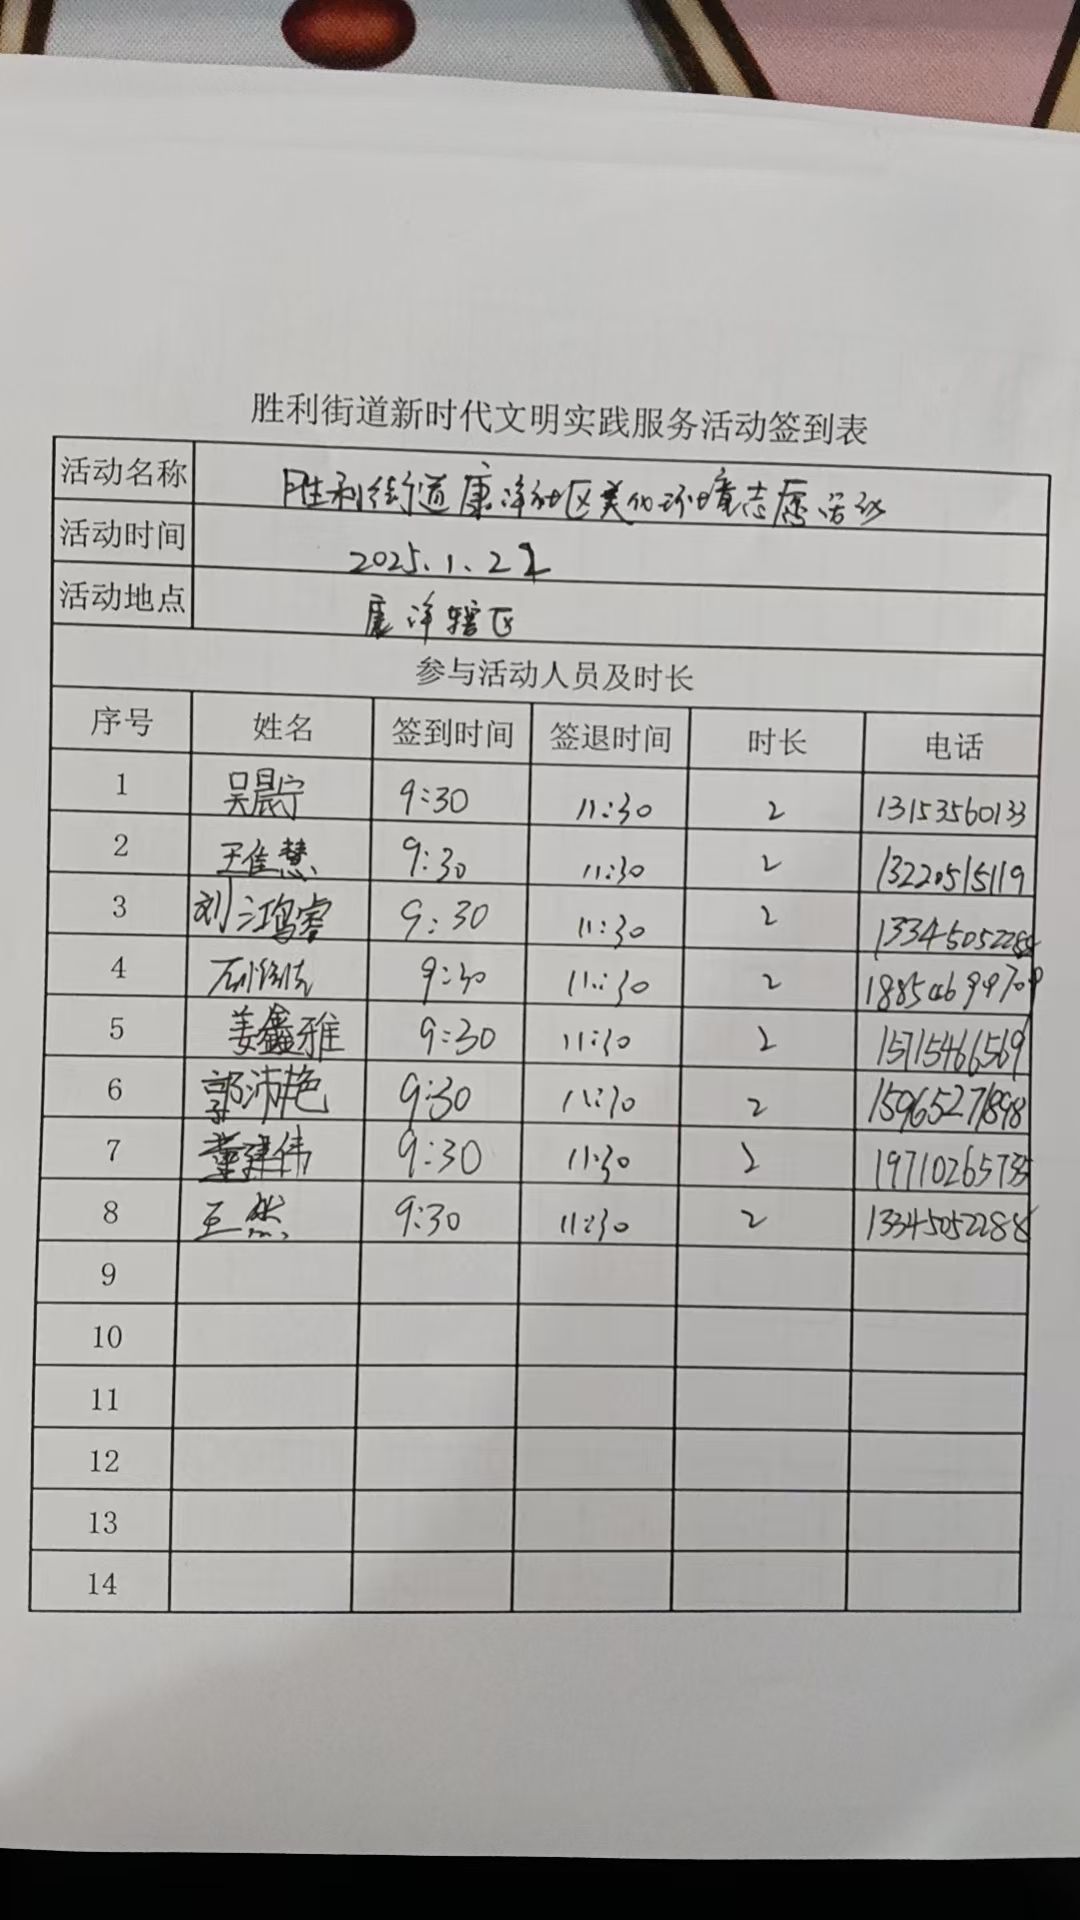 胜利街道新时代文明实践服务活动签到表
活动名称 胜利街道康洋社区美化环境志愿活动
活动时间 2025.1.22
活动地点 康洋辖区
参与活动人员及时长
序号 姓名 签到时间 签退时间 时长 电话
1 吴晨宁 9:30 11:30 2 13153560133
2 王佳慧 9:30 11:30 2 13220515119
3 刘鸿睿 9:30 11:30 2 13345052288
4 9:30 11:30 2
5 姜鑫雅 9:30 11:30 2 15715466569
6 郭沛艳 9:30 11:30 2 15965271898
7 董建伟 9:30 11:30 2 19710265735
8 王然 9:30 11:30 2 13345052288
9
10
11
12
13
14